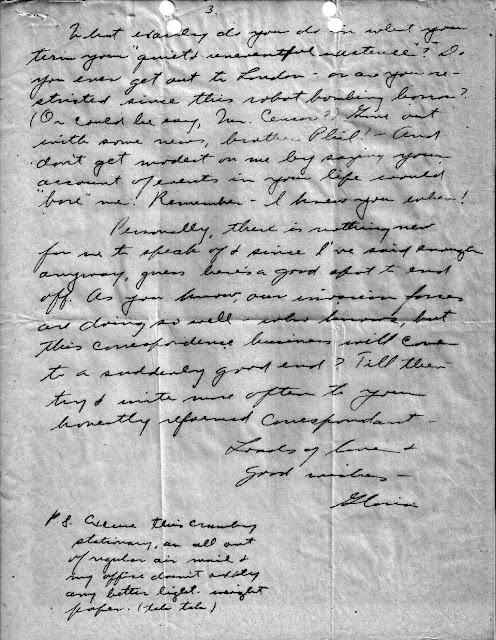 3.
What exactly do you do in what you
term your "quiet & uneventful existence"? Do
you ever get out to London - or are you re-
stricted since this robot bombing horror?
(Or could he say, Mr. Censor?) Give out
with some news, brother Phil! - And
don't get modest on me by saying your
account of events in your life would
"bore" me! Remember - I knew you when!
Personally, there is nothing new
for me to speak of & since I've said enough
anyway, guess here's a good spot to end
off. As you know, our invasion forces
are doing so well - who knows, but
this correspondence business will come
to a suddenly good end? Till then
try & write more often to your
honestly reformed correspondent -
Loads of love &
good wishes -
Gloria
P.S. Excuse this crumby
stationary, am all out
of regular air mail &
my office doesn't supply
any better light-weight
paper. (tsk tsk)